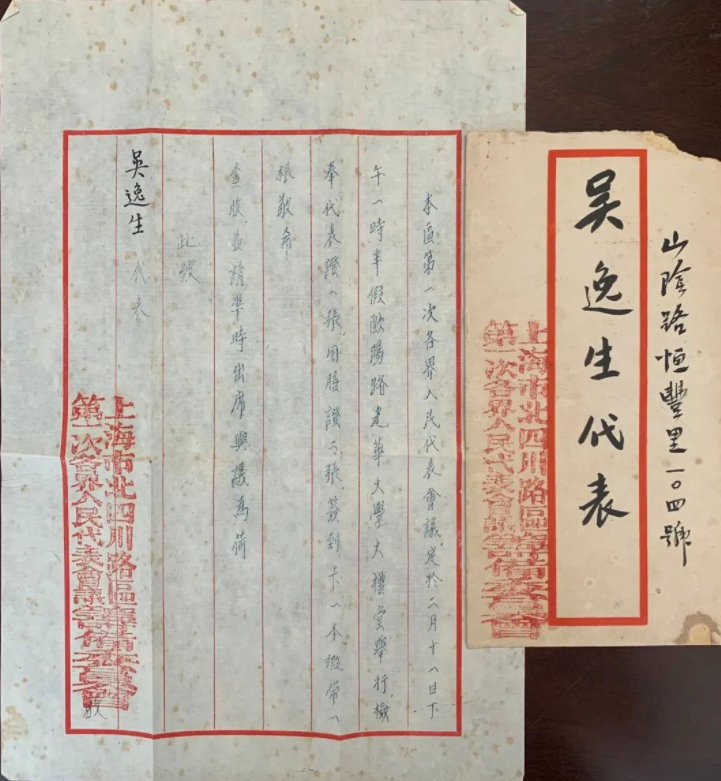 本區第一次各界人民代表會議，定於二月十八日下
午一時半假歐陽路光華大學大禮堂舉行，檢
奉代表證一張用膳證二張簽到卡一本緞帶一
根敬希
查收並請準時出席與議為荷
此致
吳逸生 代表
上海市北四川路區籌備委員會
第一次各界人民代表會議
啟
山陰路恒豐里一〇四號
吳逸生代表
上海市北四川路區籌備委員會
第一次各界人民代表會議